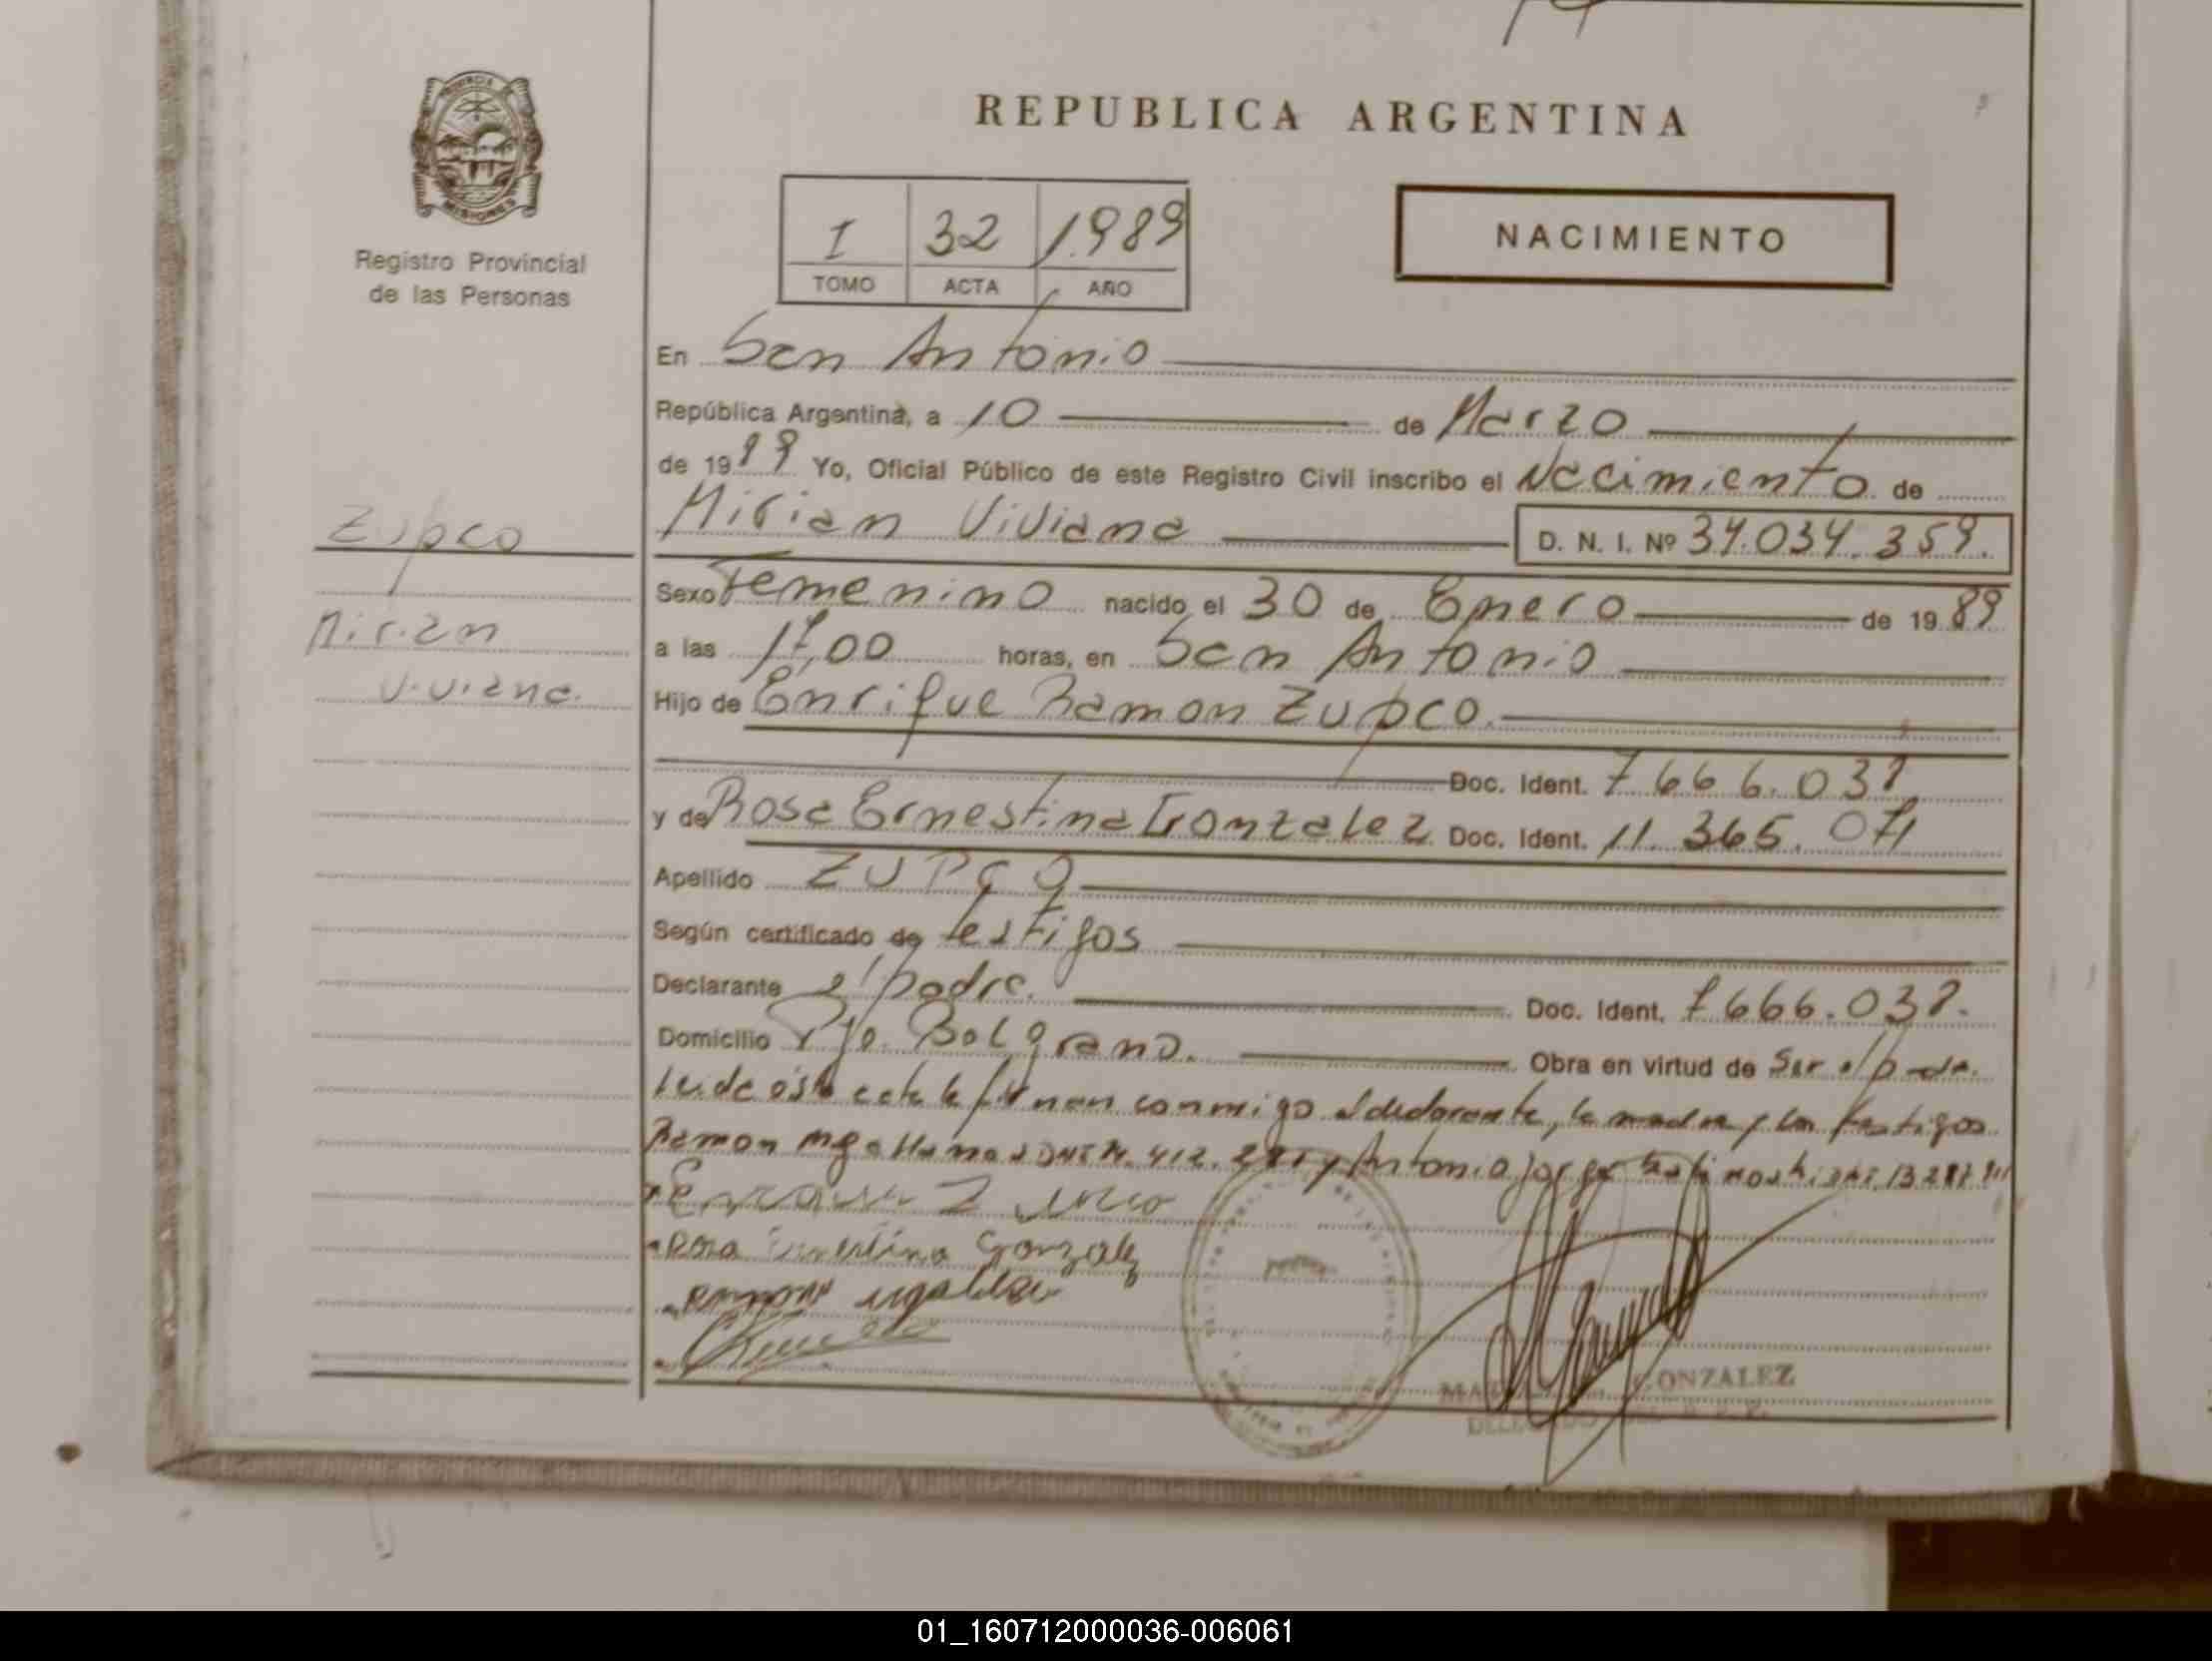 REPUBLICA ARGENTINA
MISIONES
Registro Provincial
de las Personas
I 32 1.989
TOMO ACTA AÑO
NACIMIENTO
En San Antonio
República Argentina, a 10 de Marzo
de 1989 Yo, Oficial Público de este Registro Civil inscribo el Nacimiento de
Zupco
Mirian
Viviana
Mirian Viviana D. N. I. Nº 34.034.359.
Sexo Femenino nacido el 30 de Enero de 1989
a las 17,00 horas, en San Antonio
Hijo de Enrique Ramon Zupco.
Doc. Ident. 7.666.038
y de Rosa Ernestina Gonzalez Doc. Ident. 11.365.071
Apellido ZUPCO
Según certificado de testigos
Declarante el padre. Doc. Ident. 7.666.038.
Domicilio Belgrano. Obra en virtud de Ser el padre.
Leida esta acta la firman conmigo el declarante, la madre y los testigos
Ramon y Antonio Jorge
Rosa Ernestina Gonzalez
GONZALEZ
01_160712000036-006061